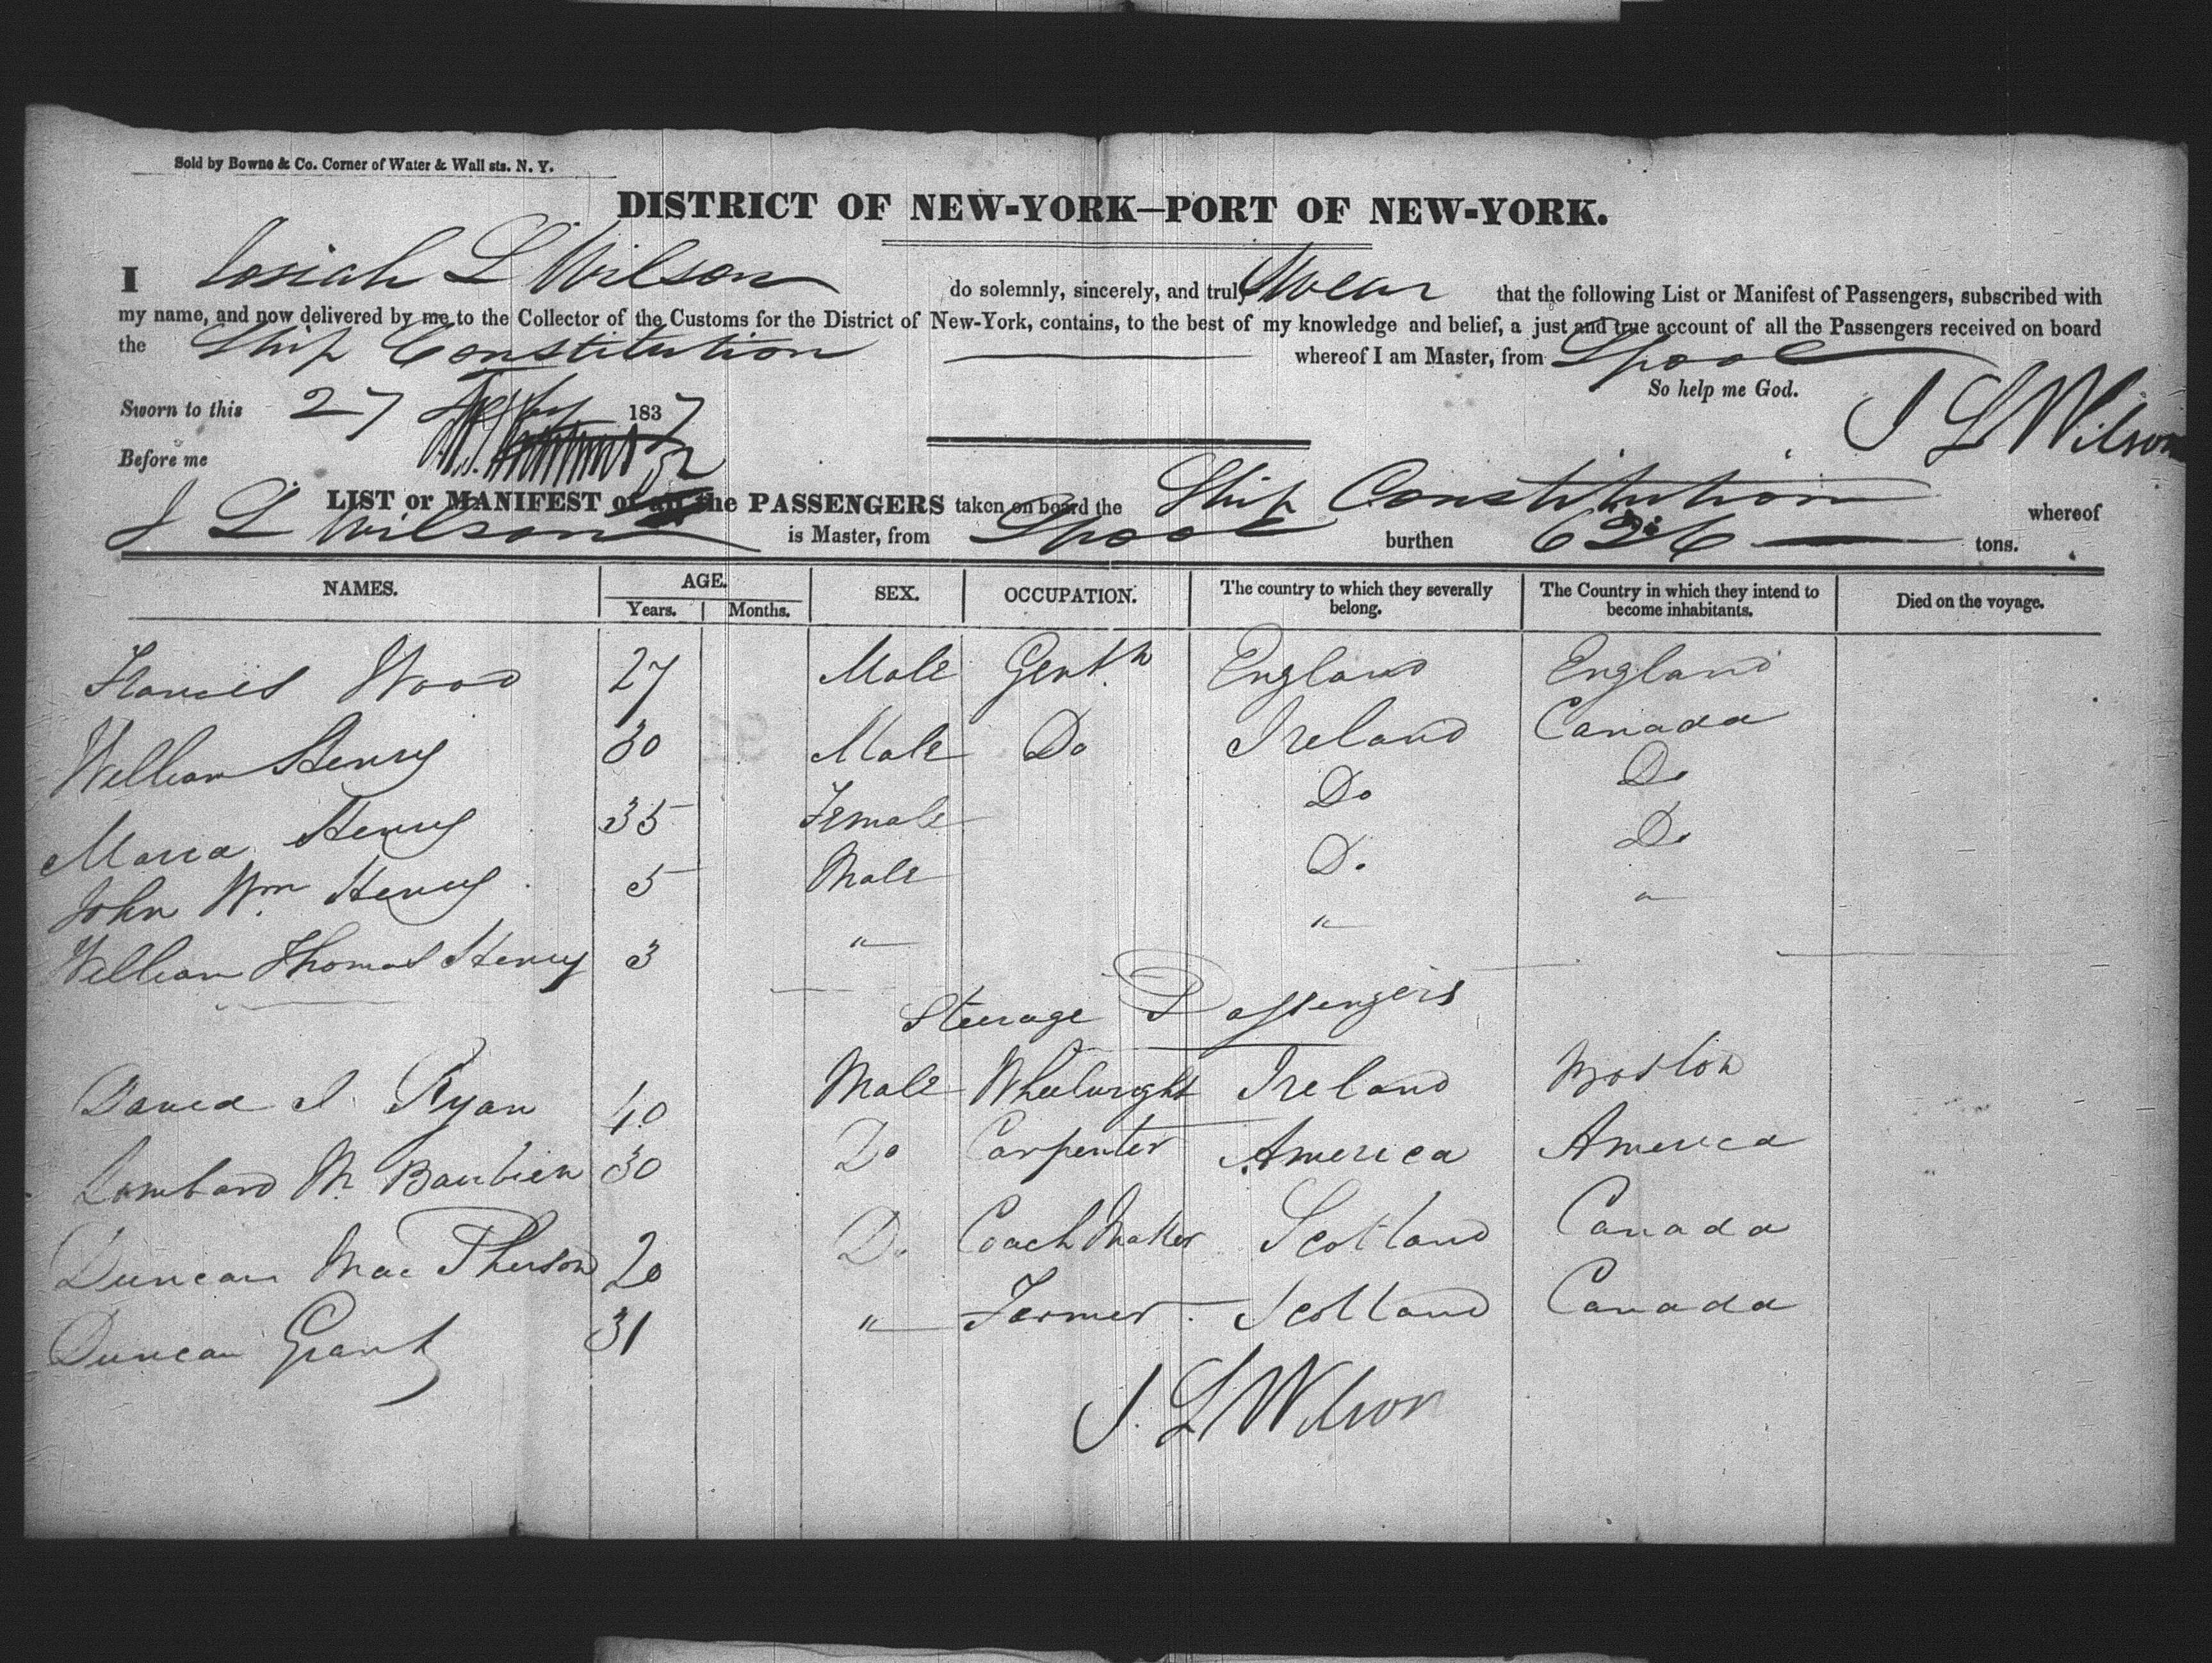 Sold by Bowne & Co. Corner of Water & Wall sts. N. Y.
DISTRICT OF NEW-YORK—PORT OF NEW-YORK.
I Josiah L Wilson do solemnly, sincerely, and truly Swear that the following List or Manifest of Passengers, subscribed with
my name, and now delivered by me to the Collector of the Customs for the District of New-York, contains, to the best of my knowledge and belief, a just and true account of all the Passengers received on board
the Ship Constitution whereof I am Master, from Lpool
So help me God.
Sworn to this 27 1837 J L Wilson
Before me
LIST or MANIFEST of all the PASSENGERS taken on board the Ship Constitution whereof
J L Wilson is Master, from Lpool burthen 626 tons.
NAMES. AGE. SEX. OCCUPATION. The country to which they severally belong. The Country in which they intend to become inhabitants. Died on the voyage.
Years. Months.
Francis Wood 27 Male Gentn England England
William Henry 30 Male Do Ireland Canada
Maria Henry 35 Female Do Do
John Wm Henry 5 Male Do Do
William Thomas Henry 3 " " "
Steerage Passengers
David J. Ryan 40 Male Wheelwright Ireland Boston
Lombard M. Baubien 30 Do Carpenter America America
Duncan Mac Pherson 20 Do Coach Maker Scotland Canada
Duncan Grant 31 " Farmer Scotland Canada
J. L Wilson